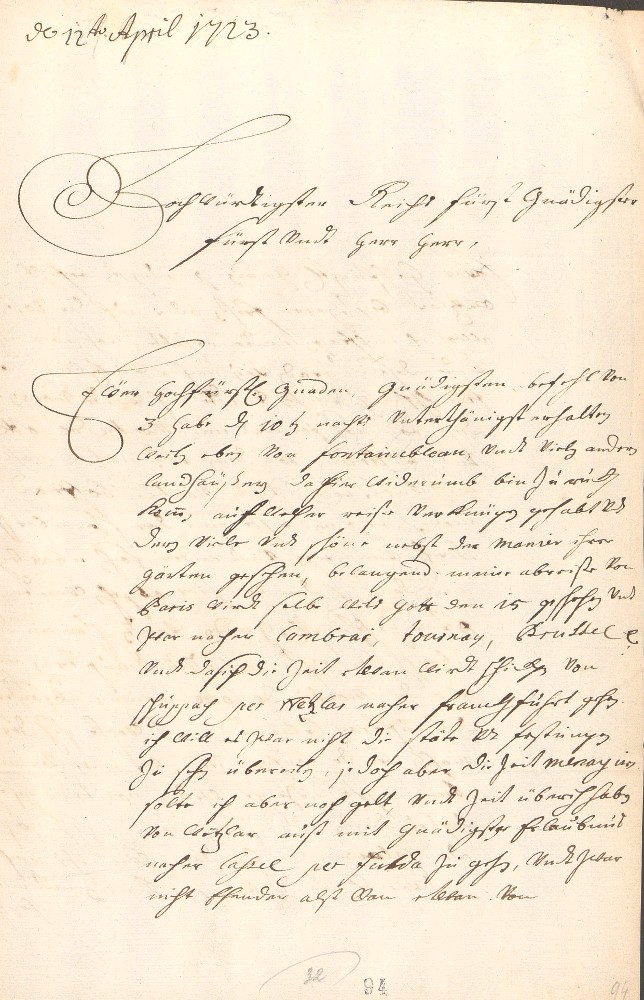 de 12t April 1723.
Hochwürdigster Reichs Fürst Gnädigster
Fürst Undt Herr Herr,
Ewer Hochfürstl Gnaden Gnädigsten befehl Von
3 habe d 10 nachts Unterthänigst erhalten
Weilen eben Von fontainebleau, Undt Vielen andern
landhäusern dahier Widerumb bin Zu ruck
Komen, auff Welcher reise Vergnügen gehabt
deren Viele Undt schöne nebst der manier ihrer
gärten gesehen, belangend meine abreise Von
Paris Wirdt selbe Wils Gott den 15 geschehen Undt
Zwar nacher Cambrai, tournay, Brussel
Undt dasich die Zeit etwan Wirdt schicken Von
per Wetzlar nacher franckfuhrt gehen.
ich Will es Zwar nicht die stäte festungen
Zu sehen übereilen, jedoch aber die Zeit menagiren
solte ich aber noch gelt, Undt Zeit übrich haben
Von Wetzlar auß mit Gnädigster Erlaubnus
nacher Cassel per fulda Zu gehen, Undt Zwar
nicht alß Von etwan Von
32
94
94